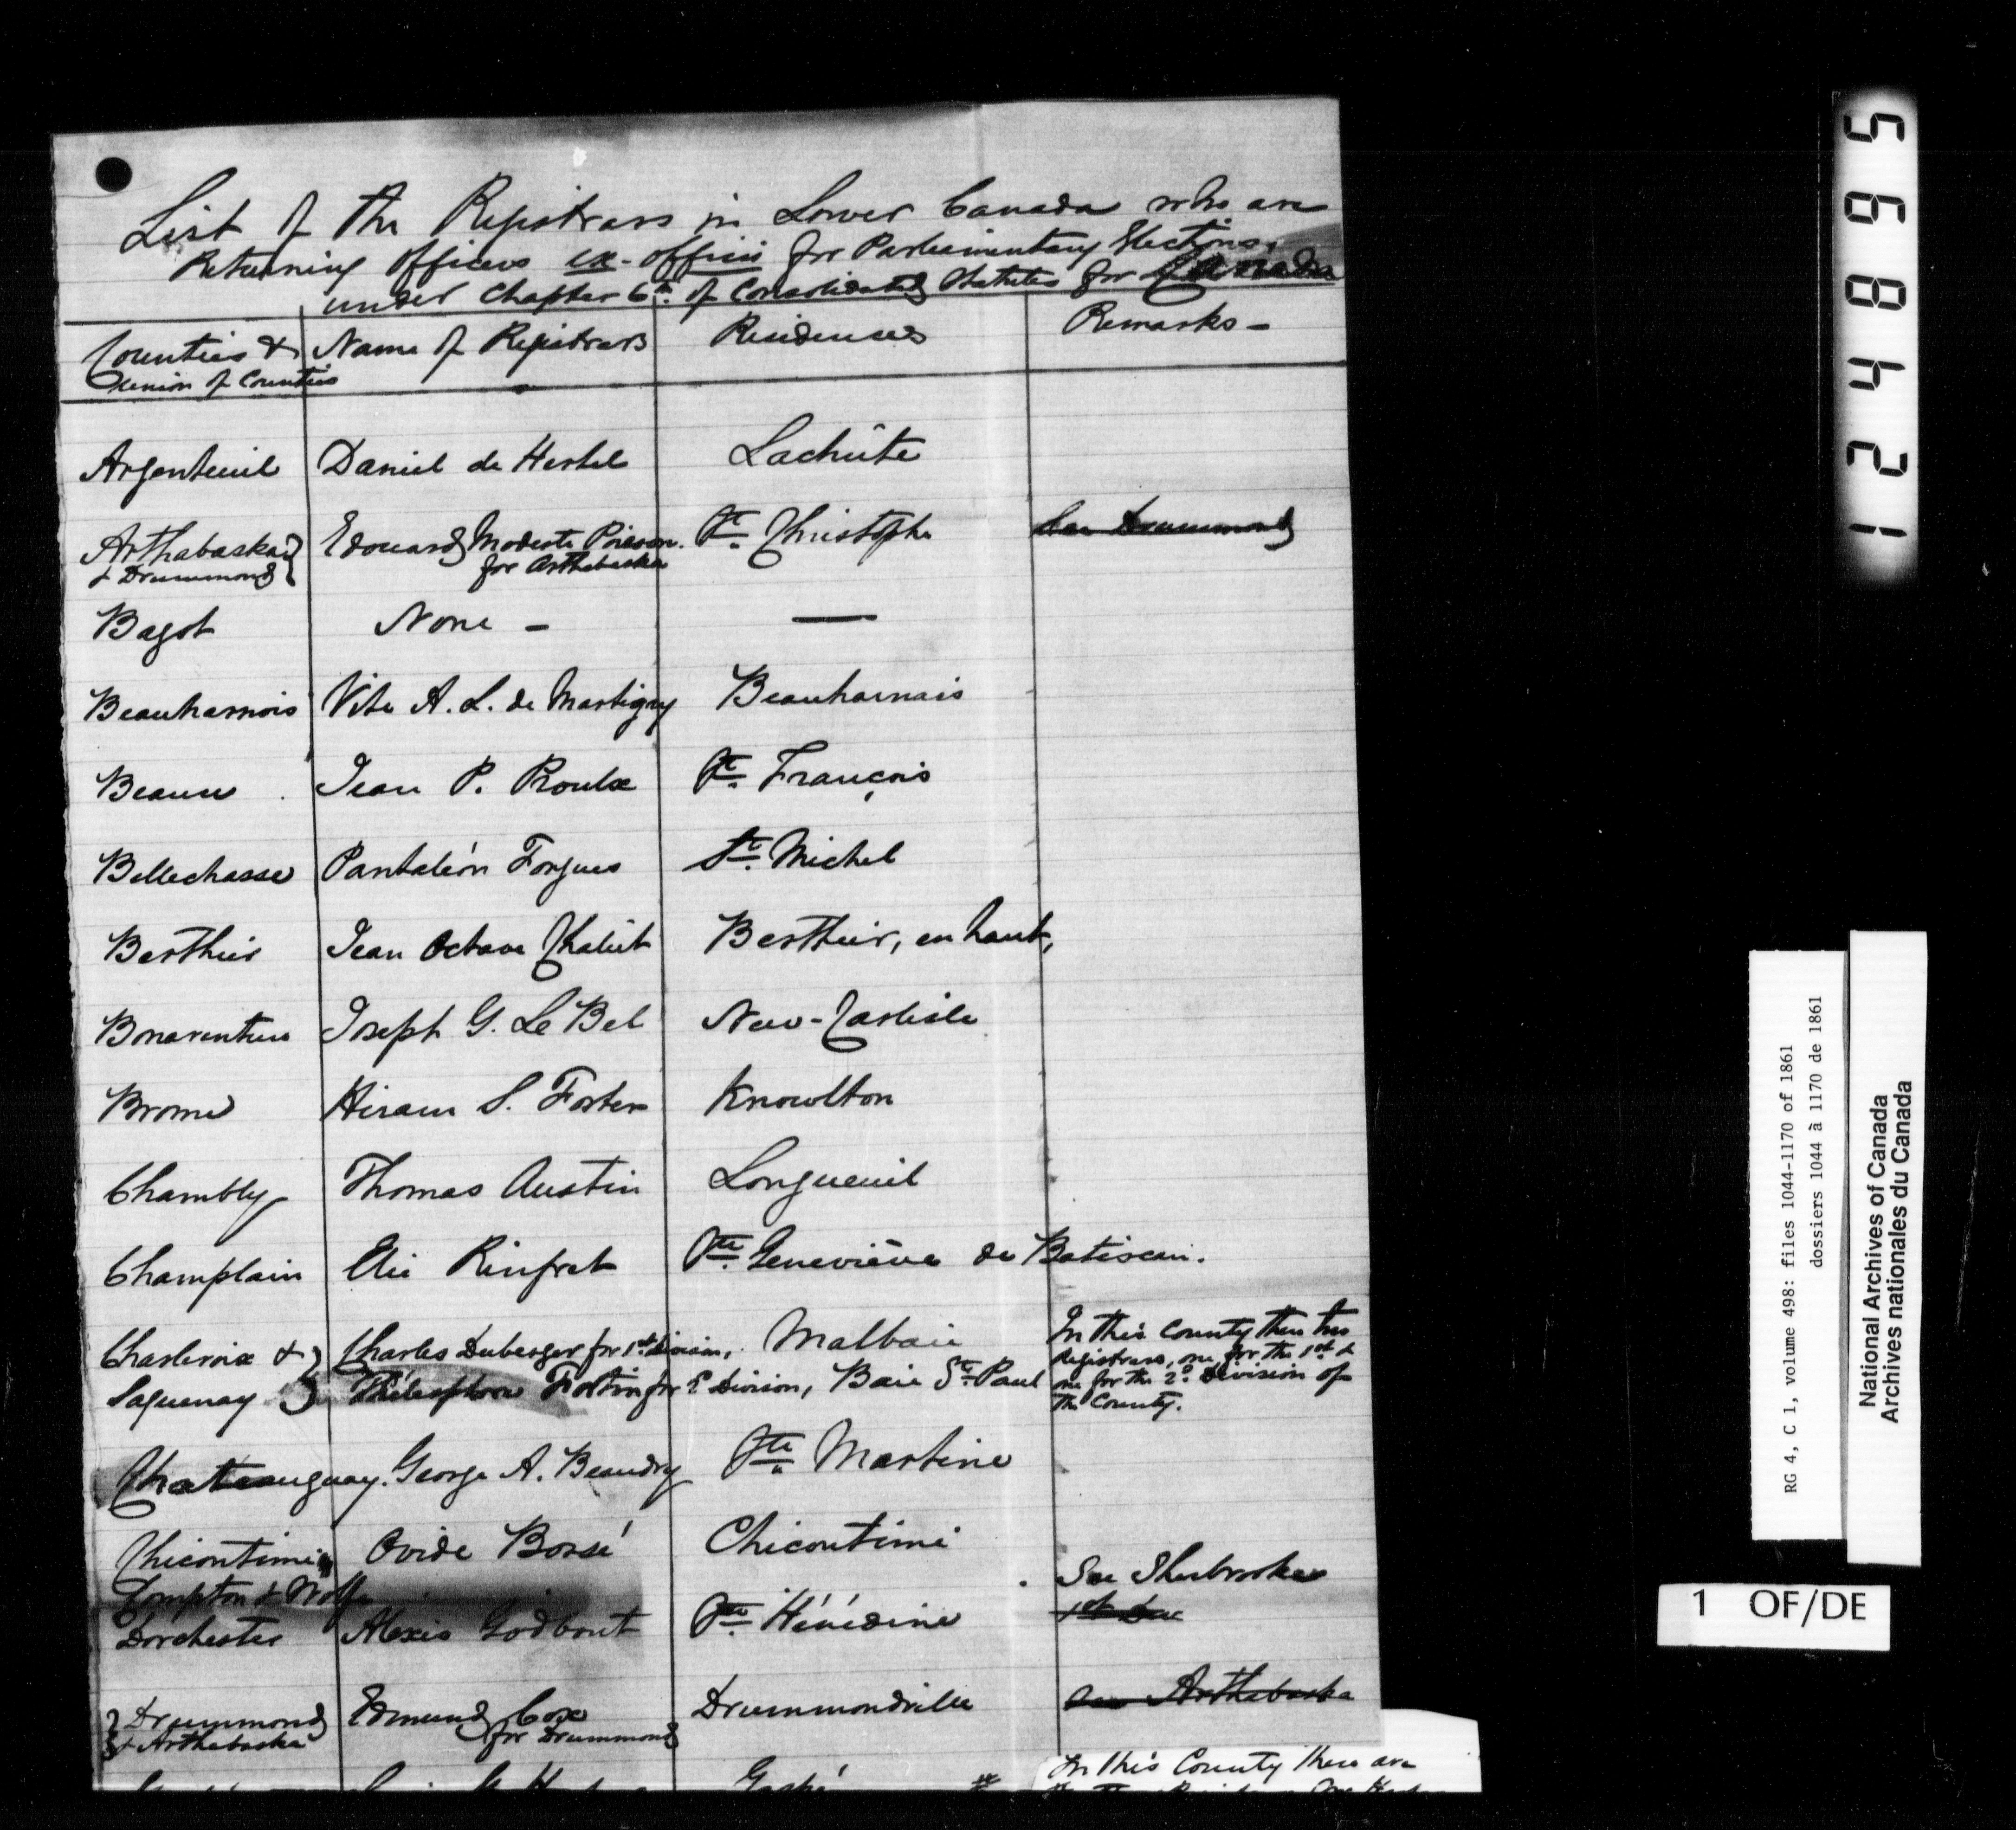 List of the Registrars in Lower Canada who are
Returning Officers ex-officio for Parliamentary Elections,
under Chapter 6th of Consolidated Statutes for Canada
Counties & Union of Counties | Name of Registrars | Residences | Remarks -
Argenteuil | Daniel de Hertel | Lachûte
Arthabaska & Drummond } | Edouard Modeste Poisson. for Arthabaska | St. Christophe | See Drummond
Bagot | None - | —
Beauharnois | Vite A. L. de Martigny | Beauharnais
Beauce | Jean P. Proulx | St. François
Bellechasse | Pantaléon Forgues | St. Michel
Berthier | Jean Octave Chalût | Berthier, en haut,
Bonaventure | Joseph G. Le Bel | New-Carlisle
Brome | Hiram S. Foster | Knowlton
Chambly | Thomas Austin | Longueuil
Champlain | Elie Rinfret | Ste. Geneviève de Batiscan.
Charlevoix & Saguenay } | Charles Duberger for 1st division, | Malbaie | In this County there two
Télesphore Fortin for 2d Division, | Baie St. Paul | Registrars, one for the 1st &
one for the 2d Division of
the County.
Chateauguay. | George A. Beaudry | Ste. Martine
Chicoutimi | Ovide Bossé | Chicoutimi
Compton & Wolfe | See Sherbrooke
Dorchester | Alexis Godbout | Ste. Hénédine
{ Drummond & Arthabaska | Edmund Cox for Drummond | Drummondville | See Arthabaska
Gaspé | In this County there are
124895
RG 4, C 1, volume 498: files 1044-1170 of 1861
dossiers 1044 à 1170 de 1861
National Archives of Canada
Archives nationales du Canada
1 OF/DE